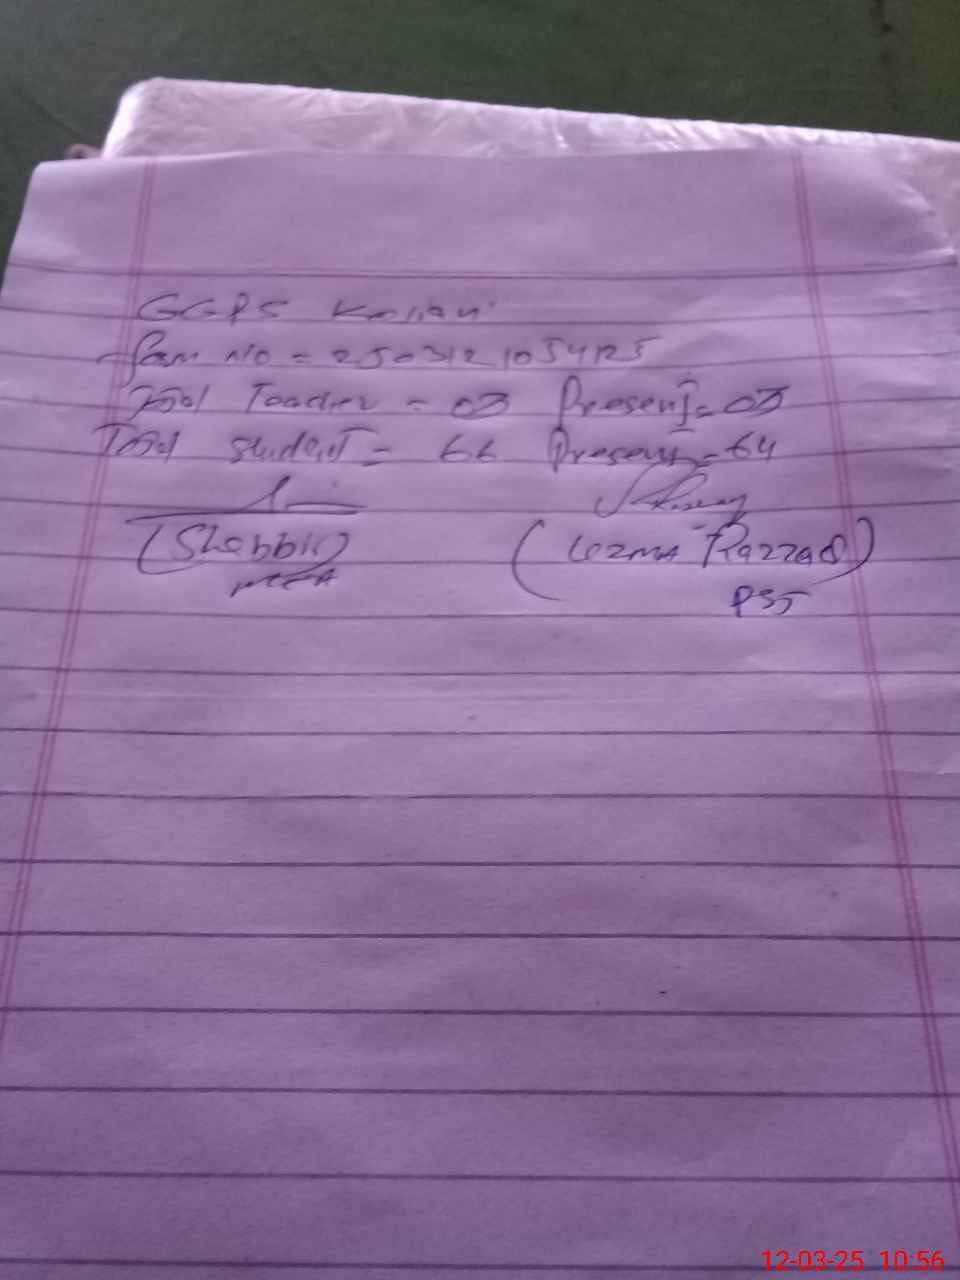 GGPS Kallan
Fam No = 250312 1054125
Total Teacher = 03 Present = 03
Total Student = 66 Present = 64
(Shabbir) (Uzma Razzaq)
PST
12-03-25 10:56